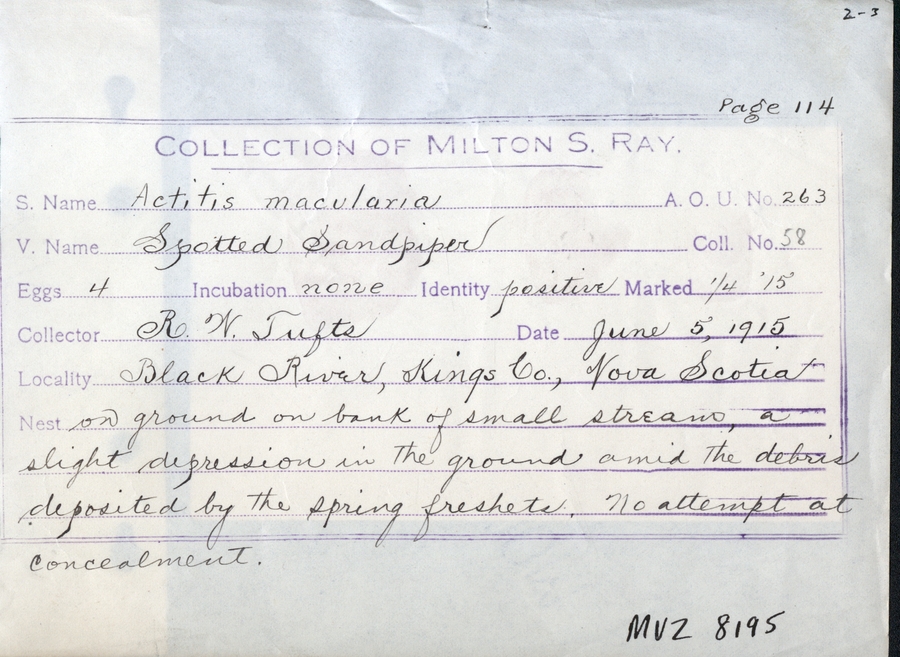 2-3
Page 114
COLLECTION OF MILTON S. RAY.
S. Name Actitis macularia A. O. U. No. 263
V. Name Spotted Sandpiper Coll. No. 58
Eggs 4 Incubation none Identity positive Marked 1/4 '15
Collector R. W. Tufts Date June 5, 1915
Locality Black River, Kings Co., Nova Scotia
Nest on ground on bank of small stream, a
slight depression in the ground amid the debris
deposited by the spring freshets. No attempt at
concealment.
MVZ 8195